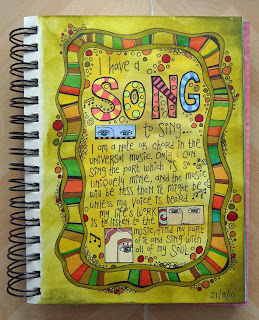 I have a
SONG
to sing...
I am a note or chord in the
universal music. Only I can
sing the part which is so
uniquely mine, and the music
will be less than it might be
unless my voice is heard
my life's work
is to listen to the
music, find my part
of it and sing with
all of my soul.